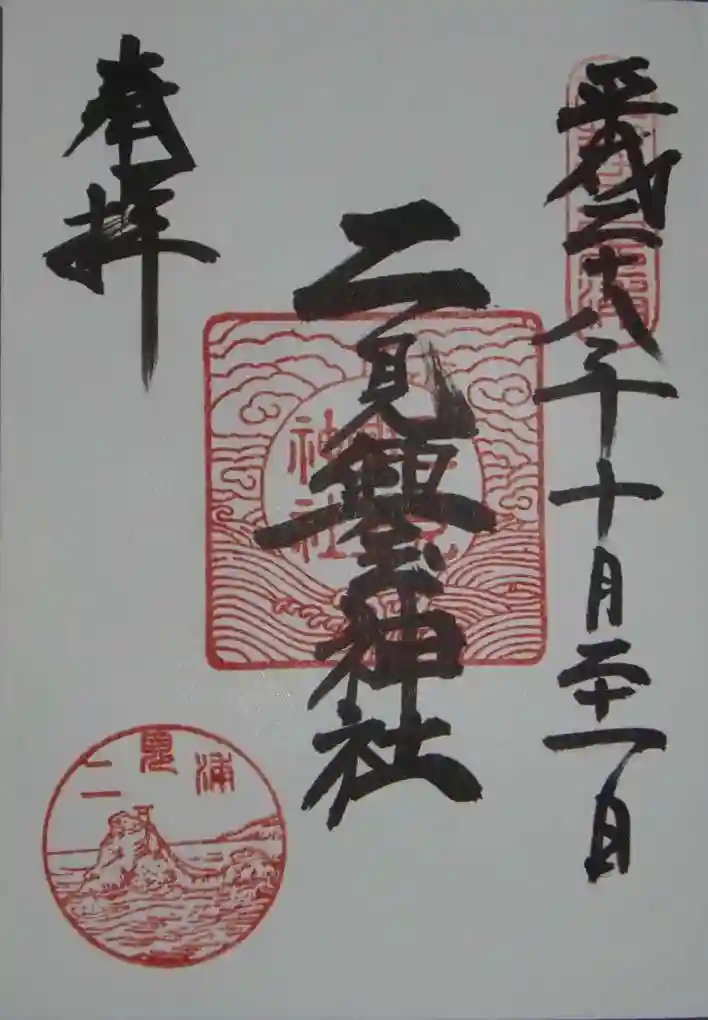 平成二十八年十月二十一日
二見興玉神社
神社
奉拝
二見浦